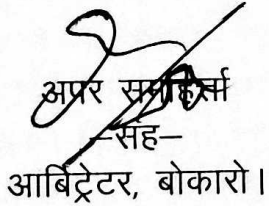 अपर समाहर्त्ता
–सह–
आर्बिट्रेटर, बोकारो।